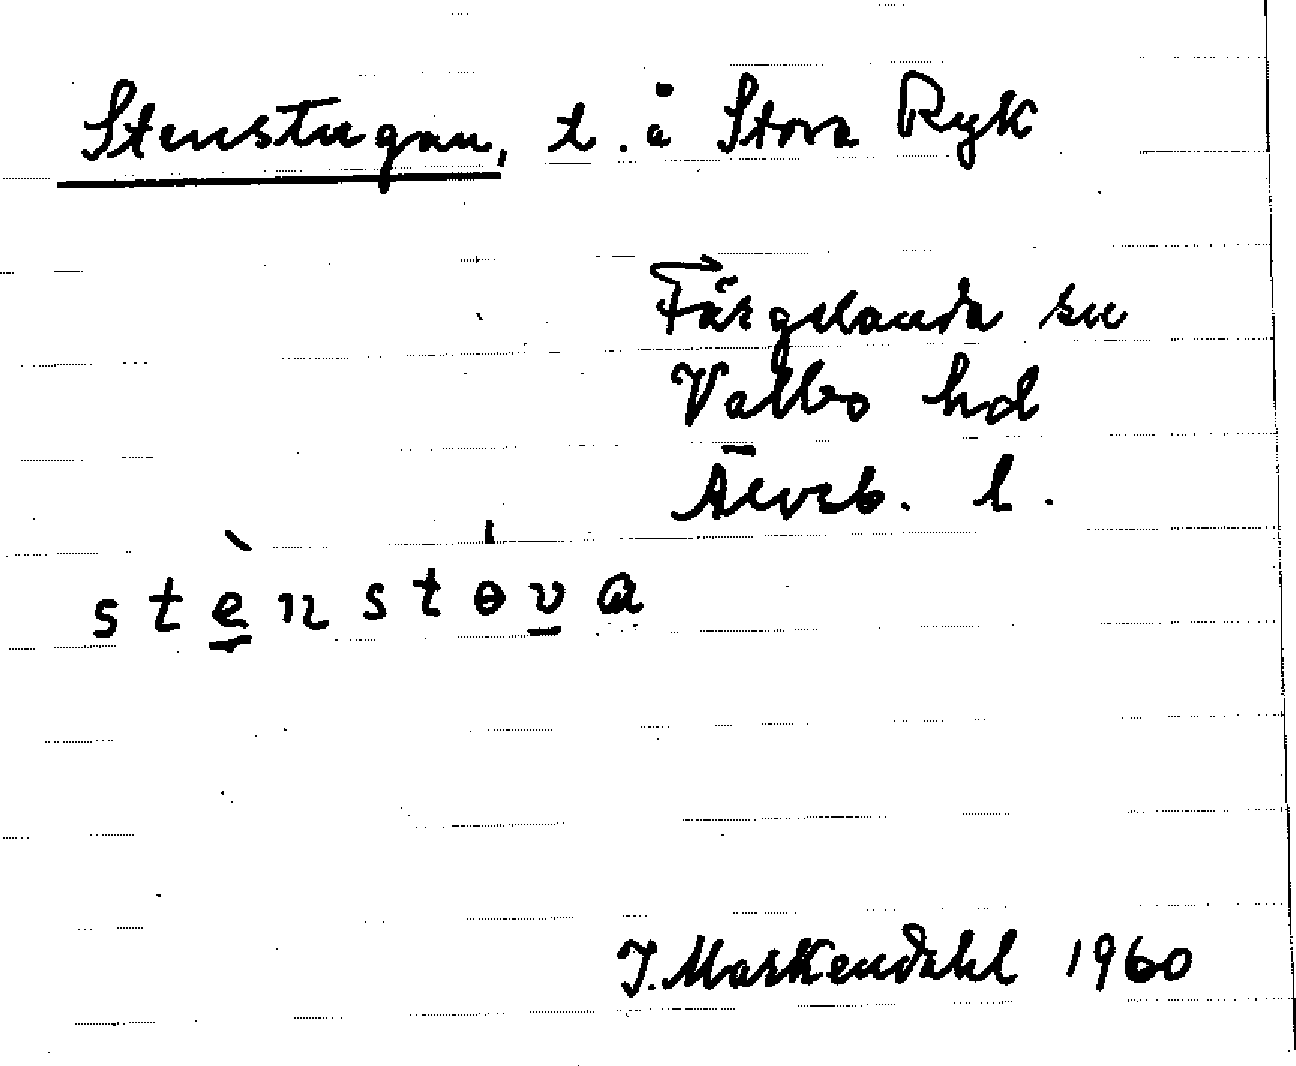 Stenstugan, t. å Stora Ryk
Färgelanda sn
Valbo hd
Älvsb. l.
stènstɵva
J. Markendahl 1960